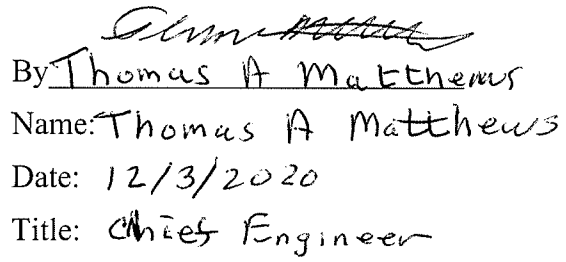 By Thomas A Matthews
Name: Thomas A Matthews
Date: 12/3/2020
Title: Chief Engineer